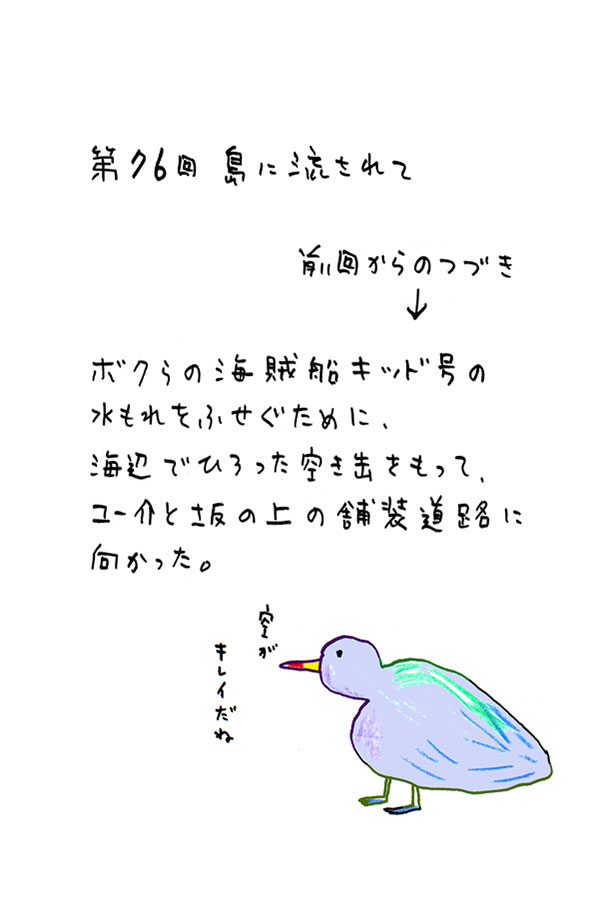 第76回 島に流されて
前回からのつづき
↓
ボクらの海賊船キッド号の
水もれをふせぐために、
海辺でひろった空き缶をもって、
ユー介と坂の上の舗装道路に
向かった。
空が
キレイだね